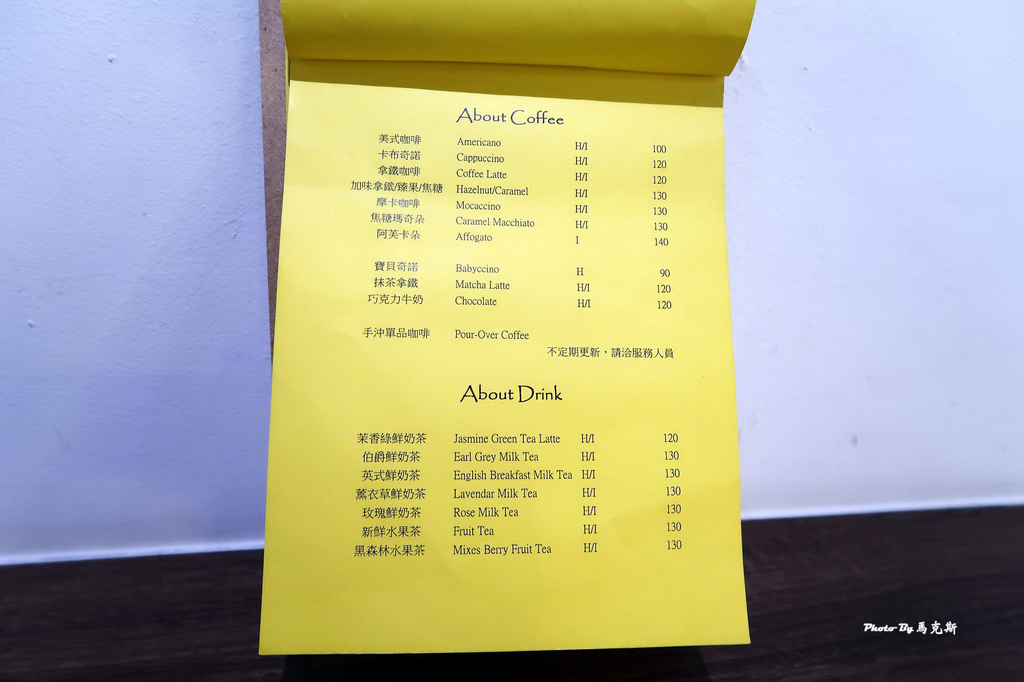 About Coffee
美式咖啡 Americano H/I 100
卡布奇諾 Cappuccino H/I 120
拿鐵咖啡 Coffee Latte H/I 120
加味拿鐵/臻果/焦糖 Hazelnut/Caramel H/I 130
摩卡咖啡 Mocaccino H/I 130
焦糖瑪奇朵 Caramel Macchiato H/I 130
阿芙卡朵 Affogato I 140
寶貝奇諾 Babyccino H 90
抹茶拿鐵 Matcha Latte H/I 120
巧克力牛奶 Chocolate H/I 120
手沖單品咖啡 Pour-Over Coffee
不定期更新，請洽服務人員
About Drink
茉香綠鮮奶茶 Jasmine Green Tea Latte H/I 120
伯爵鮮奶茶 Earl Grey Milk Tea H/I 130
英式鮮奶茶 English Breakfast Milk Tea H/I 130
薰衣草鮮奶茶 Lavendar Milk Tea H/I 130
玫瑰鮮奶茶 Rose Milk Tea H/I 130
新鮮水果茶 Fruit Tea H/I 130
黑森林水果茶 Mixes Berry Fruit Tea H/I 130
Photo By 馬克斯